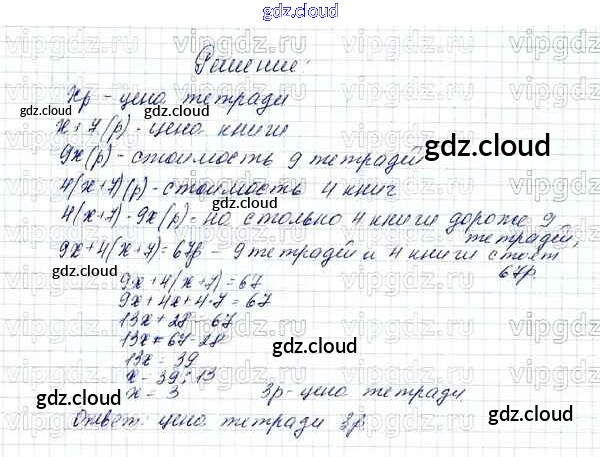 gdz.cloud
Решение:
xр - цена тетради
x+7(р) - цена книги
9x(р) - стоимость 9 тетрадей
4(x+7)(р) - стоимость 4 книг
4(x+7) - 9x(р) - на столько 4 книги дороже 9
тетрадей,
9x+4(x+7)=67р - 9 тетрадей и 4 книги стоят
67р.
9x+4(x+7)=67
9x+4x+4·7=67
13x+28=67
13x=67-28
13x=39
x=39:13
x=3 3р - цена тетради
Ответ: цена тетради 3р.
gdz.cloud
gdz.cloud
gdz.cloud
gdz.cloud
gdz.cloud
gdz.cloud
gdz.cloud
gdz.cloud
gdz.cloud